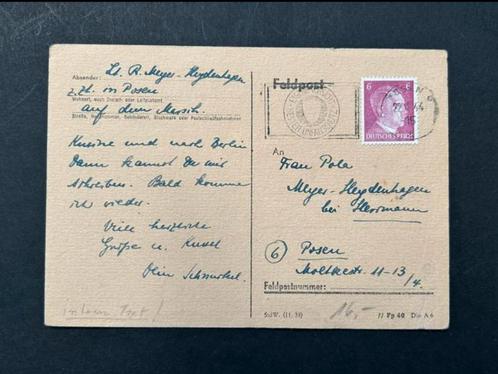 Absender: Lt. R. Meyer-Heydenhagen
z.Zt. in Posen
Wohnort, auch Zustell- oder Leitpostamt
auf dem Marsch.
Straße, Hausnummer, Gebäudeteil, Stockwerk oder Postschließfachnummer
und nach Berlin
Dann kannst Du mir
schreiben. Bald komme
ich wieder.
Viele herzliche
Grüße u. Kussel
Dein
Feldpost
6 6
DEUTSCHES REICH
An
Frau Pola
Meyer-Heydenhagen
bei Herrmann
(6) Posen
Moltkestr 11-13/4.
Feldpostnummer:
16,-
StdW. (H. M)
// Fp 40 Din A 6